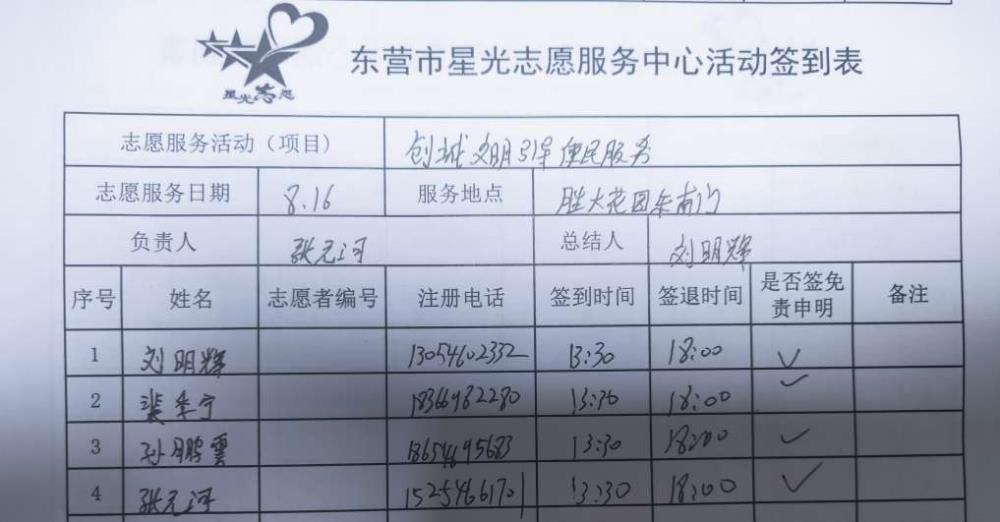 星光志愿
东营市星光志愿服务中心活动签到表
志愿服务活动（项目） 创城文明引导便民服务
志愿服务日期 8.16 服务地点 胜大花园东南门
负责人 张元河 总结人 刘明辉
序号 姓名 志愿者编号 注册电话 签到时间 签退时间 是否签免责申明 备注
1 刘明辉 13054602332 13:30 18:00 ✓
2 裴季宁 18366982280 13:30 18:00 ✓
3 孙鹏云 13:30 18:00 ✓
4 张元河 15254661701 13:30 18:00 ✓